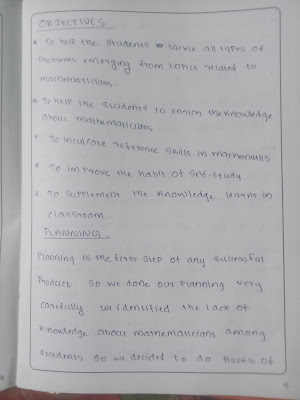 OBJECTIVES
* To help the students to tackle all types of
problems emerging from topics related to
mathematicians.
* To help the students to enrich the knowledge
about mathematicians
* To inculcate reference skills in mathematics
* To improve the habit of self-study
* To supplement the knowledge learnt in
classroom.
PLANNING.
Planning is the first step of any successful
product so we done our planning very
carefully. we identified the lack of
knowledge about mathematicians among
students. So we decided to do Books of